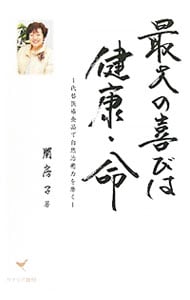 最大の喜びは
健康・命
―代替医療食品で自然治癒力を磨く―
関房子 著